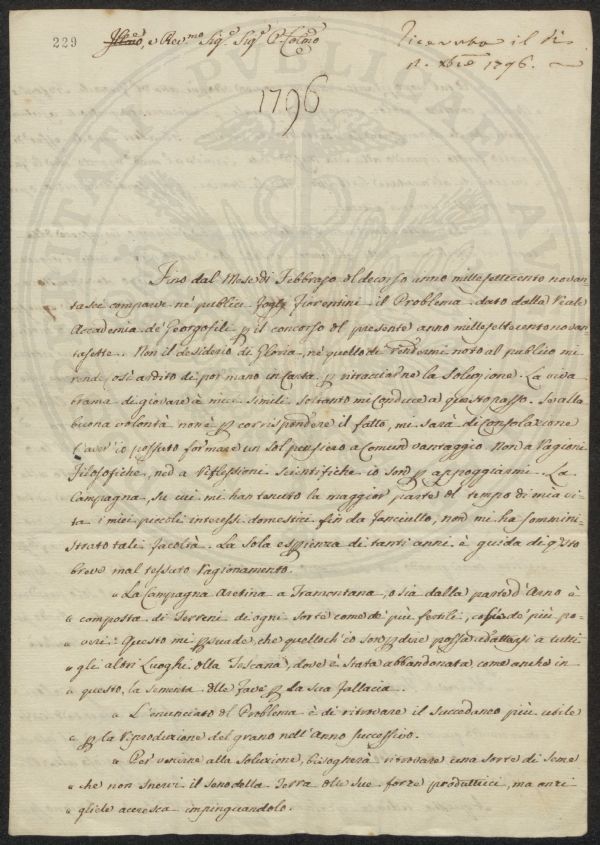 229
Ill.mo, e Rev.mo Sig.e Sig.e P.e Colmo
Ricevuta il dì
11. xbre 1796.
1796
Fino dal Mese di Febbrajo del decorso anno millesettecento novan
tasee comparve ne' publici Foglj Fiorentini il Problema dato dalla Reale
Accademia de' Georgofili p il concorso del presente anno millesettecento novan
tasette. Non il desiderio di Gloria, nè quello di rendermi noto al publico mi
rende così ardito di por mano in Carta p ritracciarne la Soluzione. La viva
brama di giovare à miei simili soltanto mi conduce a questo passo. Se alla
buona volontà non è p corrispondere il fatto, mi sarà di consolazione
l'aver io possuto formare un sol pensiero a comun vantaggio. Non a Ragioni
Filosofiche, ned a Riflessioni Scientifiche io son p appoggiarmi. La
Campagna, su cui mi han tenuto la maggior parte del tempo di mia vi
ta i miei piccoli interessi domestici fin da fanciullo, non mi ha sommini
strato tali facoltà. La sola espienza di tanti anni è guida di qsto
breve mal tessuto Ragionamento.
" La Campagna Aretina a Tramontana, o sia dalla parte d'Arno è
" composta di Terreni di ogni sorte come de' più fertili, che de' più po-
" veri. Questo mi psuade, che quello ch'io son p dire possa adattarsi a tutti
" gli altri Luoghi della Toscana, dove è stata abbandonata, come anche in
" questo, la sementa delle fave p la sua fallacia.
" L'enunciato del Problema è di ritrovare il succedaneo più utile
" p la riproduzione del grano nell'Anno successivo.
" Per venirne alla Soluzione, bisognerà ritrovare una sorte di seme
" che non snervi il seno della Terra delle sue forze produttrici, ma anzi
" gliele accresca impinguandolo.